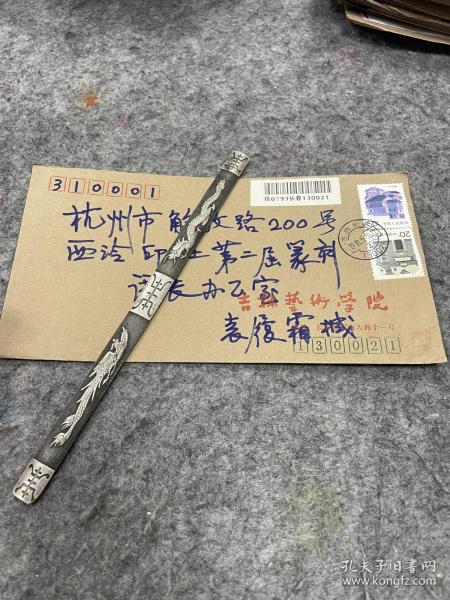 310001
挂0797长春130021
杭州市解放路200号
西泠印社第二届篆刻
评长办公室
吉林艺術学院
袁履霜缄
130021
20
孔夫子旧书网
www.kongfz.com